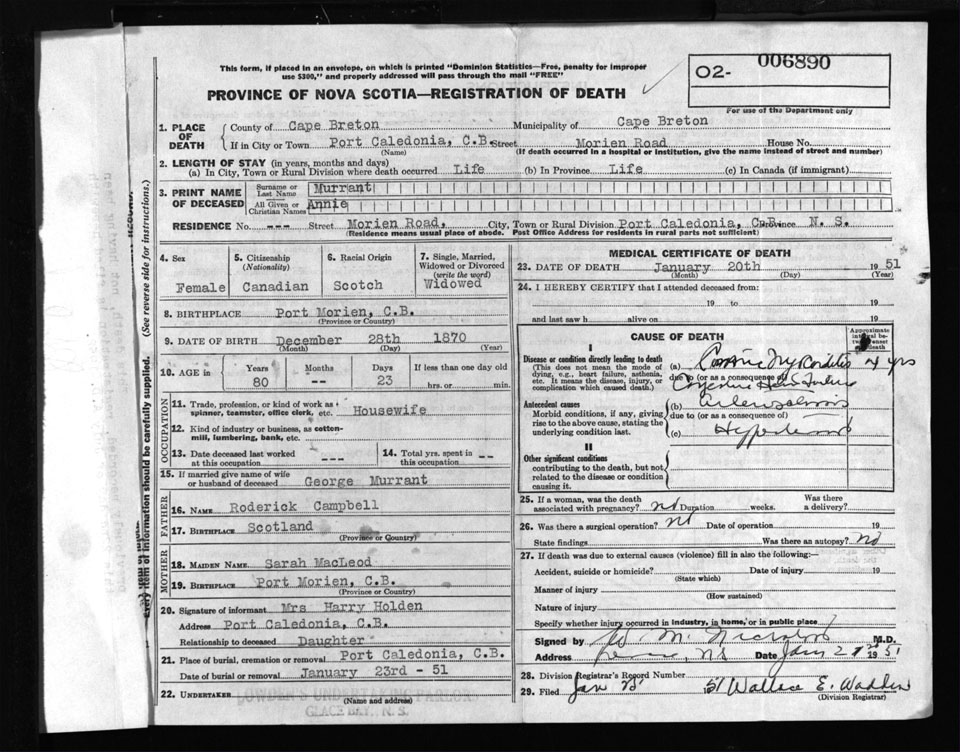 This form, if placed in an envelope, on which is printed "Dominion Statistics—Free, penalty for improper
use $300," and properly addressed will pass through the mail "FREE"
PROVINCE OF NOVA SCOTIA—REGISTRATION OF DEATH
O2- 006890
For use of the Department only
1. PLACE OF DEATH
County of Cape Breton Municipality of Cape Breton
If in City or Town Port Caledonia, C.B. Street Morien Road House No.
(Name) (If death occurred in a hospital or institution, give the name instead of street and number)
2. LENGTH OF STAY (in years, months and days)
(a) In City, Town or Rural Division where death occurred Life (b) In Province Life (c) In Canada (if immigrant)
3. PRINT NAME OF DECEASED
Surname or Last Name Murrant
All Given or Christian Names Annie
RESIDENCE No. --- Street Morien Road, City, Town or Rural Division Port Caledonia, C.B. Province N. S.
(Residence means usual place of abode. Post Office Address for residents in rural parts not sufficient)
(See reverse side for instructions.)
Every item of information should be carefully supplied.
4. Sex Female
5. Citizenship (Nationality) Canadian
6. Racial Origin Scotch
7. Single, Married, Widowed or Divorced (write the word) Widowed
8. BIRTHPLACE Port Morien, C.B.
(Province or Country)
9. DATE OF BIRTH December 28th 1870
(Month) (Day) (Year)
10. AGE in Years 80 Months -- Days 23 If less than one day old hrs. or min.
OCCUPATION
11. Trade, profession, or kind of work as spinner, teamster, office clerk, etc. Housewife
12. Kind of industry or business, as cotton-mill, lumbering, bank, etc.
13. Date deceased last worked at this occupation ---
14. Total yrs. spent in this occupation --
15. If married give name of wife or husband of deceased George Murrant
FATHER
16. NAME Roderick Campbell
17. BIRTHPLACE Scotland
(Province or Country)
MOTHER
18. MAIDEN NAME Sarah MacLeod
19. BIRTHPLACE Port Morien, C.B.
(Province or Country)
20. Signature of informant Mrs Harry Holden
Address Port Caledonia, C.B.
Relationship to deceased Daughter
21. Place of burial, cremation or removal Port Caledonia, C.B.
Date of burial or removal January 23rd - 51
22. UNDERTAKER
GLACE BAY, N. S.
(Name and address)
MEDICAL CERTIFICATE OF DEATH
23. DATE OF DEATH January 20th 19 51
(Month) (Day) (Year)
24. I HEREBY CERTIFY that I attended deceased from:
19 to 19
and last saw h alive on 19
CAUSE OF DEATH
Approximate interval between onset and death
I
Disease or condition directly leading to death
(This does not mean the mode of dying, e.g., heart failure, asthenia, etc. It means the disease, injury, or complication which caused death.)
(a) Chronic Myocarditis 4 yrs
due to (or as a consequence of)
Antecedent causes
Morbid conditions, if any, giving rise to the above cause, stating the underlying condition last.
(b)
due to (or as a consequence of)
(c)
II
Other significant conditions
contributing to the death, but not related to the disease or condition causing it.
25. If a woman, was the death associated with pregnancy? no Duration weeks. Was there a delivery?
26. Was there a surgical operation? no Date of operation 19
State findings Was there an autopsy? no
27. If death was due to external causes (violence) fill in also the following:—
Accident, suicide or homicide? Date of injury 19
(State which)
Manner of injury
(How sustained)
Nature of injury
Specify whether injury occurred in industry, in home, or in public place
Signed by M. M.D.
Address NS Date Jan 19 51
28. Division Registrar's Record Number
29. Filed Jan 51 Wallace E. Wadden
(Division Registrar)